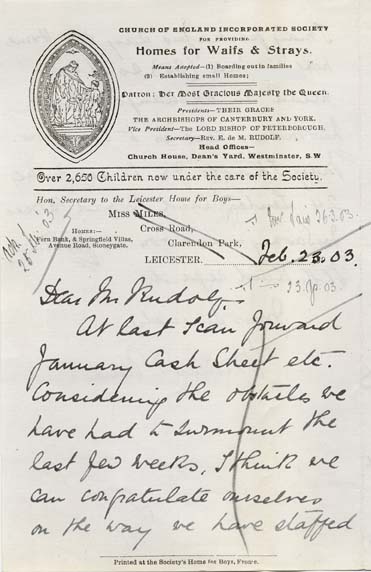 CHURCH OF ENGLAND INCORPORATED SOCIETY
FOR PROVIDING
Homes for Waifs & Strays.
Means Adopted—(1) Boarding out in families
(2) Establishing small Homes;
Patron: Her Most Gracious Majesty the Queen.
Presidents—THEIR GRACES
THE ARCHBISHOPS OF CANTERBURY AND YORK.
Vice President—The LORD BISHOP OF PETERBOROUGH.
Secretary—REV. E. de M. RUDOLF.
Head Offices—
Church House, Dean's Yard, Westminster, S.W
Over 2,650 Children now under the care of the Society.
Hon. Secretary to the Leicester Home for Boys—
MISS MILES,
26.3.03
HOMES:—
Cross Road,
Fern Bank, & Springfield Villas,
Clarendon Park,
Avenue Road, Stoneygate.
LEICESTER. Feb. 23. 03.
Dear Mr Rudolf,
At last I can forward
January Cash Sheet etc.
Considering the obstacles we
have had to surmount the
last few weeks, I think we
can congratulate ourselves
on the way we have staffed
Printed at the Society's Home for Boys, Frome.